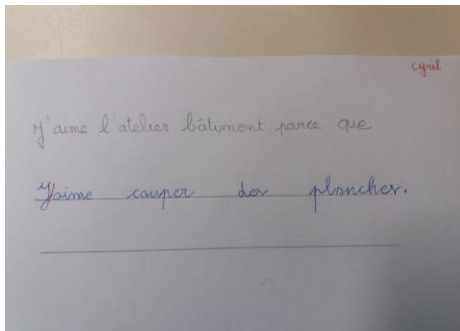 cyril
J'aime l'atelier bâtiment parce que
J'aime couper des plancher.